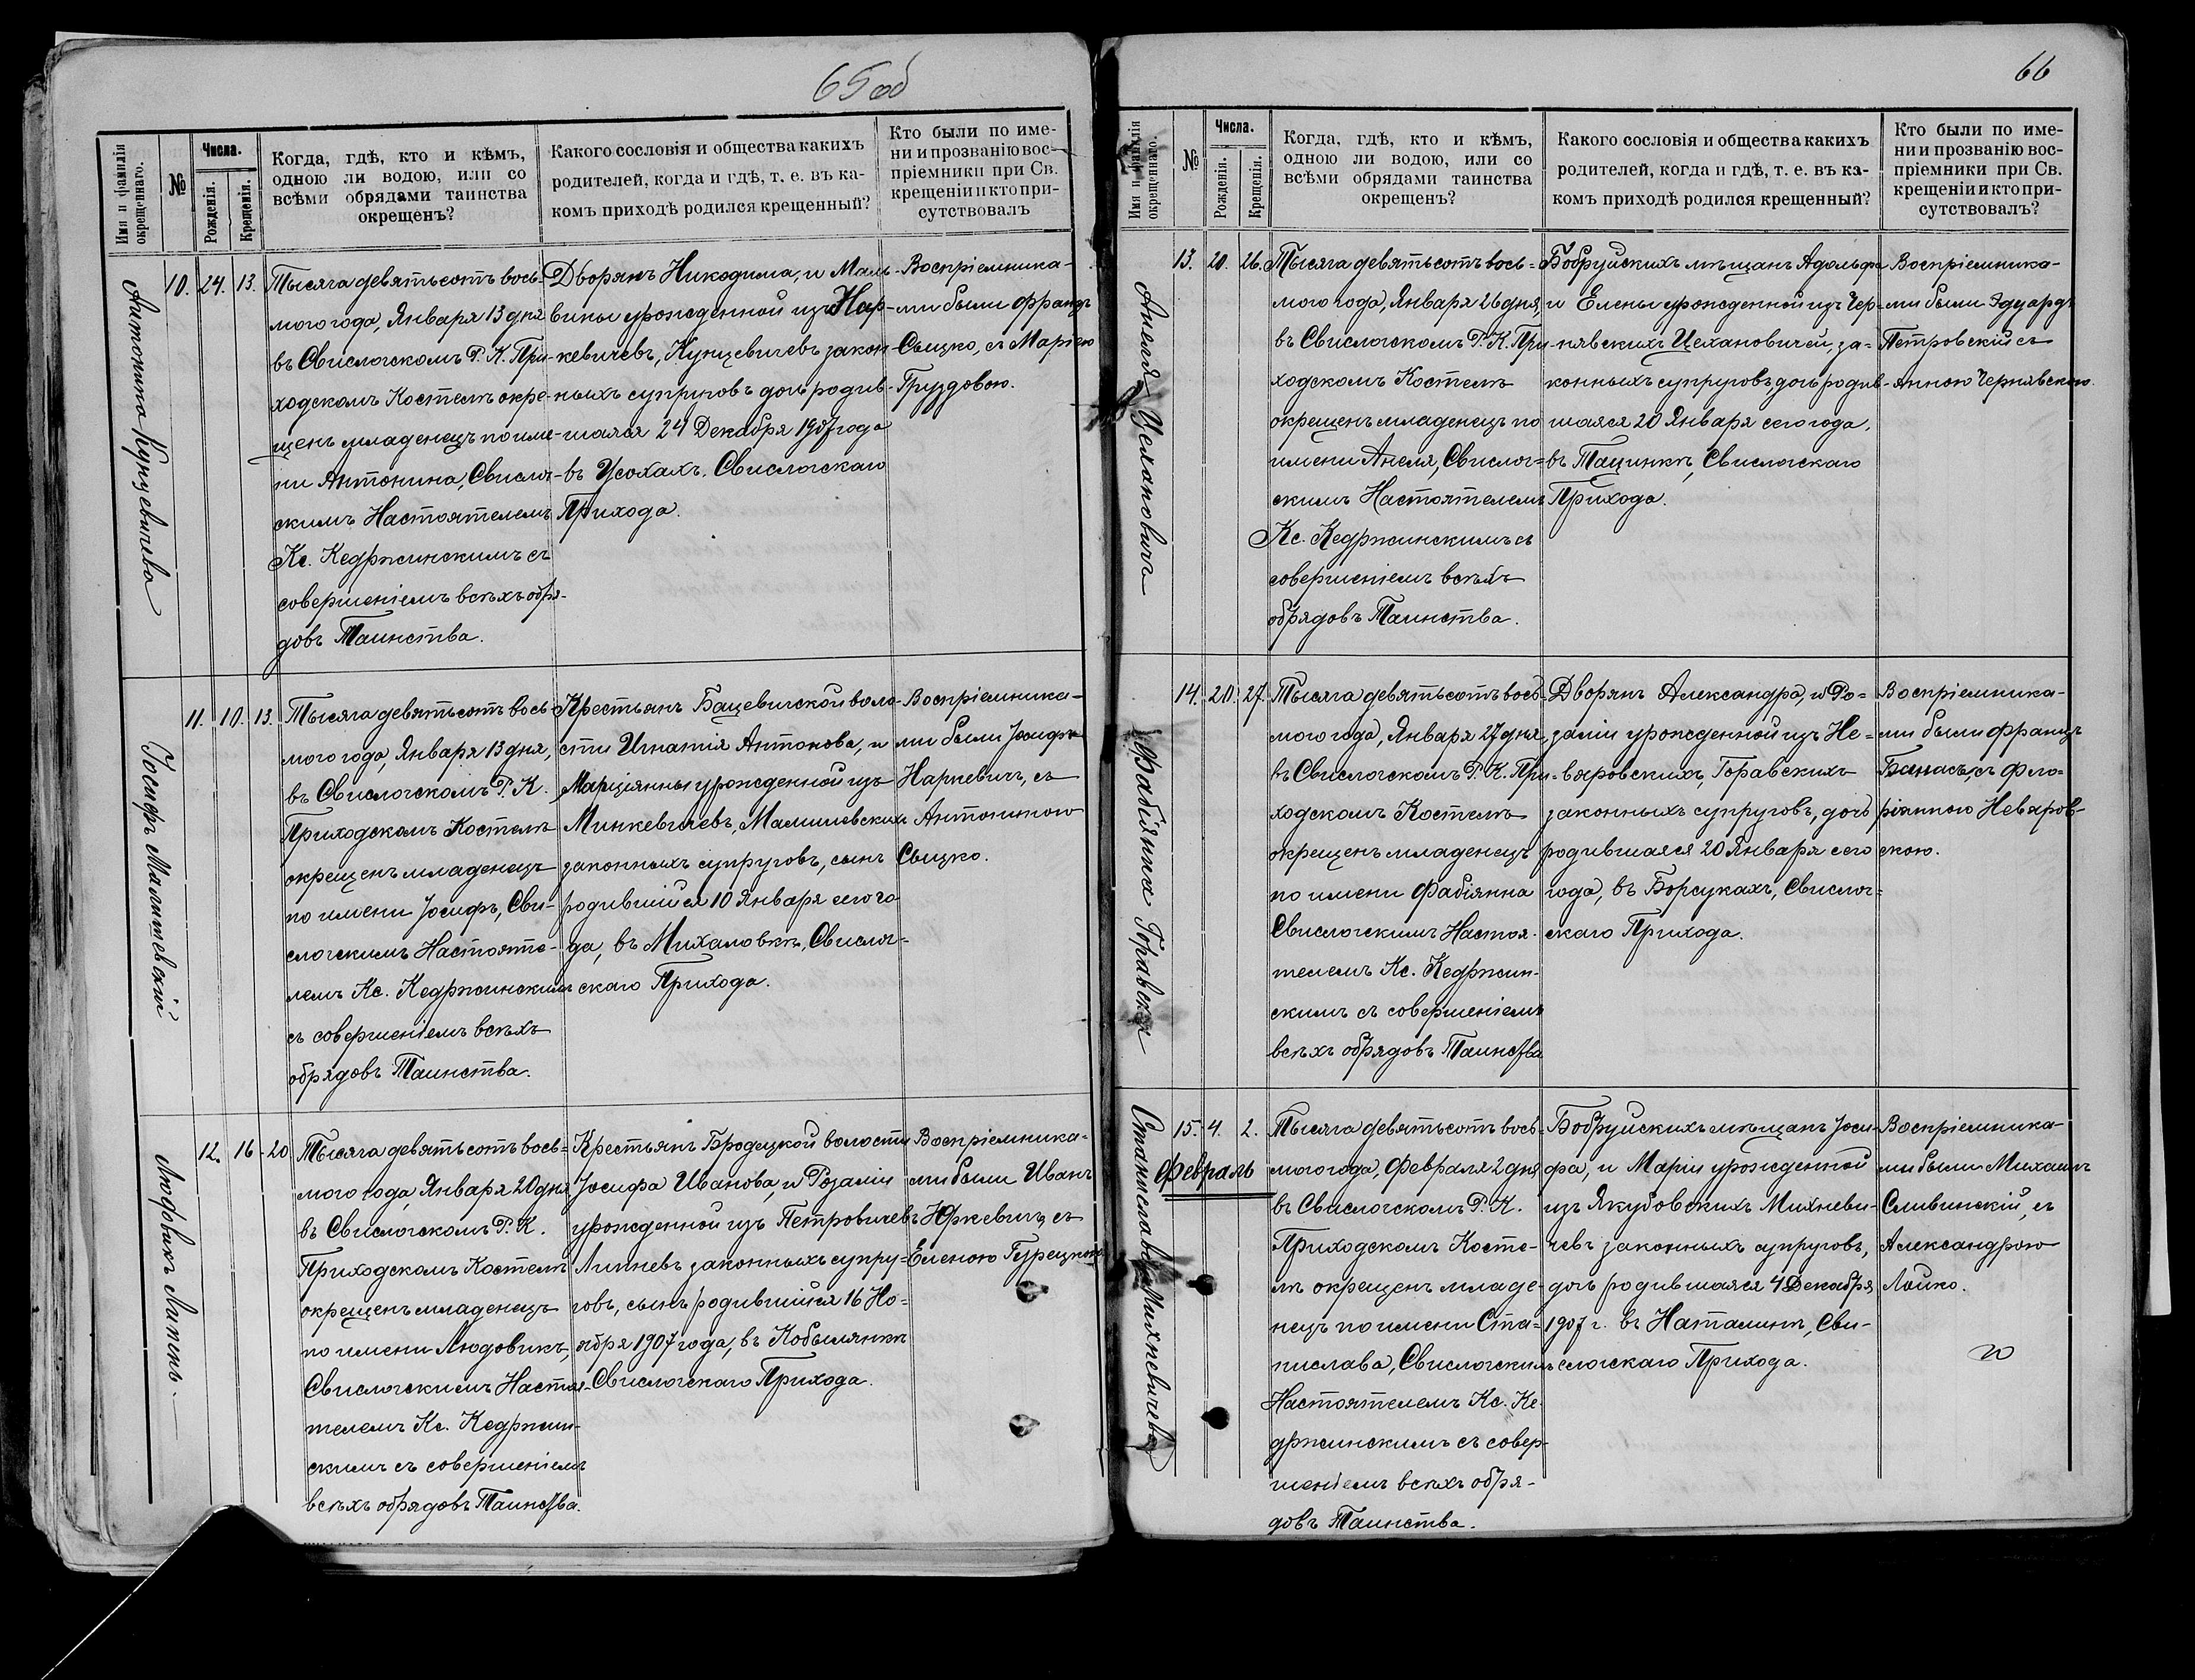 65 об
Имя и фамилія окрещ-ннаго.
№
Числа.
Рожденія.
Крещенія.
Когда, гдѣ, кто и кѣмъ,
одною ли водою, или со
всѣми обрядами таинства
окрещенъ?
Какого сословія и общества какихъ
родителей, когда и гдѣ, т. е. въ ка-
комъ приходѣ родился крещенный?
Кто были по име-
ни и прозванію вос-
пріемники при Св.
крещеніи и кто при-
сутствовалъ
Антонина Кунцевичева
10. 24. 13.
Тысяча девятьсотъ вось-
мого года, Января 13 дня
въ Свислочскомъ Р. К. При-
ходскомъ Костелѣ окре-
щенъ младенецъ по име-
ни Антонина, Свислоч-
скимъ Настоятелемъ
Кс. Кедржинскимъ съ
совершеніемъ всѣхъ обря-
довъ Таинства.
Дворянъ Никодима, и Маль-
вины урожденной изъ Нар-
кевичевъ, Кунцевичевъ закон-
ныхъ супруговъ дочь родив-
шаяся 24 Декабря 1907 года
въ Усохахъ, Свислочскаго
Прихода.
Воспріемника-
ми были Францъ
Сыцко, съ Маріею
Груздовою.
Іосифъ Малишевскій
11. 10. 13.
Тысяча девятьсотъ вось-
мого года, Января 13 дня,
въ Свислочскомъ Р. К.
Приходскомъ Костелѣ
окрещенъ младенецъ
по имени Іосифъ, Сви-
слочскимъ Настояте-
лемъ Кс. Кедржинскимъ
съ совершеніемъ всѣхъ
обрядовъ Таинства.
Крестьянъ Бацевичской воло-
сти Игнатія Антонова, и
Марціянны урожденной изъ
Минкевичевъ, Малишевскихъ
законныхъ супруговъ, сынъ
родившійся 10 Января сего го
да, въ Михаловкѣ, Свислоч-
скаго Прихода.
Воспріемника-
ми были Іосифъ
Наркевичъ, съ
Антониною
Сыцко.
Людовикъ Липень.
12. 16 - 20
Тысяча девятьсотъ вось-
мого года, Января 20 дня
въ Свислочскомъ Р. К.
Приходскомъ Костелѣ
окрещенъ младенецъ
по имени Людовикъ,
Свислочскимъ Настоя-
телемъ Кс. Кедржин-
скимъ съ совершеніемъ
всѣхъ обрядовъ Таинства.
Крестьянъ Бродецкой волости
Іосифа Иванова, и Розаліи
урожденной изъ Петровичевъ
Липневъ законныхъ супру-
говъ, сынъ родившійся 16 Но-
ября 1907 года, въ Кобылянкѣ
Свислочскаго Прихода.
Воспріемника-
ми были Иванъ
Юркевичъ, съ
Еленою Гурецкою
66
Имя и фамилія окрещеннаго.
№
Числа.
Рожденія.
Крещенія.
Когда, гдѣ, кто и кѣмъ,
одною ли водою, или со
всѣми обрядами таинства
окрещенъ?
Какого сословія и общества какихъ
родителей, когда и гдѣ, т. е. въ ка-
комъ приходѣ родился крещенный?
Кто были по име-
ни и прозванію вос-
пріемники при Св.
крещеніи и кто при-
сутствовалъ?
Анеля Цехановичъ
13. 20. 26.
Тысяча девятьсотъ вось-
мого года, Января 26 дня,
въ Свислочскомъ Р. К. При-
ходскомъ Костелѣ
окрещенъ младенецъ по
имени Анеля, Свислоч-
скимъ Настоятелемъ
Кс. Кедржинскимъ съ
совершеніемъ всѣхъ
обрядовъ Таинства.
Бобруйскихъ мѣщанъ Адольфа
и Елены урожденной изъ Чер-
нявскихъ Цехановичей, за-
конныхъ супруговъ, дочь родив-
шаяся 20 Января сего года,
въ Тацинкѣ, Свислочскаго
Прихода.
Воспріемника-
ми были Эдуардъ
Петровскій съ
Анною Чернявскою.
Фабіянна Горавская
14. 20. 27.
Тысяча девятьсотъ вось-
мого года, Января 27 дня,
въ Свислочскомъ Р. К. При-
ходскомъ Костелѣ
окрещенъ младенецъ
по имени Фабіянна
Свислочскимъ Настоя-
телемъ Кс. Кедржин-
скимъ съ совершеніемъ
всѣхъ обрядовъ Таинства
Дворянъ Александра, и Ро-
заліи урожденной изъ Не-
вяровскихъ, Горавскихъ
законныхъ супруговъ, дочь
родившаяся 20 Января сего
года, въ Борсукахъ, Свислоч-
скаго Прихода.
Воспріемника-
ми были Францъ
Банасъ, съ Фло-
ріанною Невяров-
скою.
Станислава Михневичева
15. 4. 2.
Февраль
Тысяча девятьсотъ вось-
мого года, Февраля 2 дня
въ Свислочскомъ Р. К.
Приходскомъ Косте-
лѣ окрещенъ младе-
нецъ по имени Ста-
нислава, Свислочскимъ
Настоятелемъ Кс. Ке-
држинскимъ съ совер-
шеніемъ всѣхъ обря-
довъ Таинства.
Бобруйскихъ мѣщанъ Іоси-
фа, и Маріи урожденной
изъ Якубовскихъ Михневи-
чевъ законныхъ супруговъ,
дочь родившаяся 4 Декабря
1907 г. въ Наталинѣ, Сви-
слочскаго Прихода.
Воспріемника-
ми были Михаилъ
Сливинскій, съ
Александрою
Лойко.